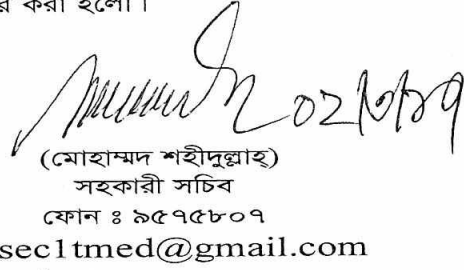 র করা হলো।
০২/৩/১৭
(মোহাম্মদ শহীদুল্লাহ্)
সহকারী সচিব
ফোন ঃ ৯৫৭৫৮০৭
sec1tmed@gmail.com